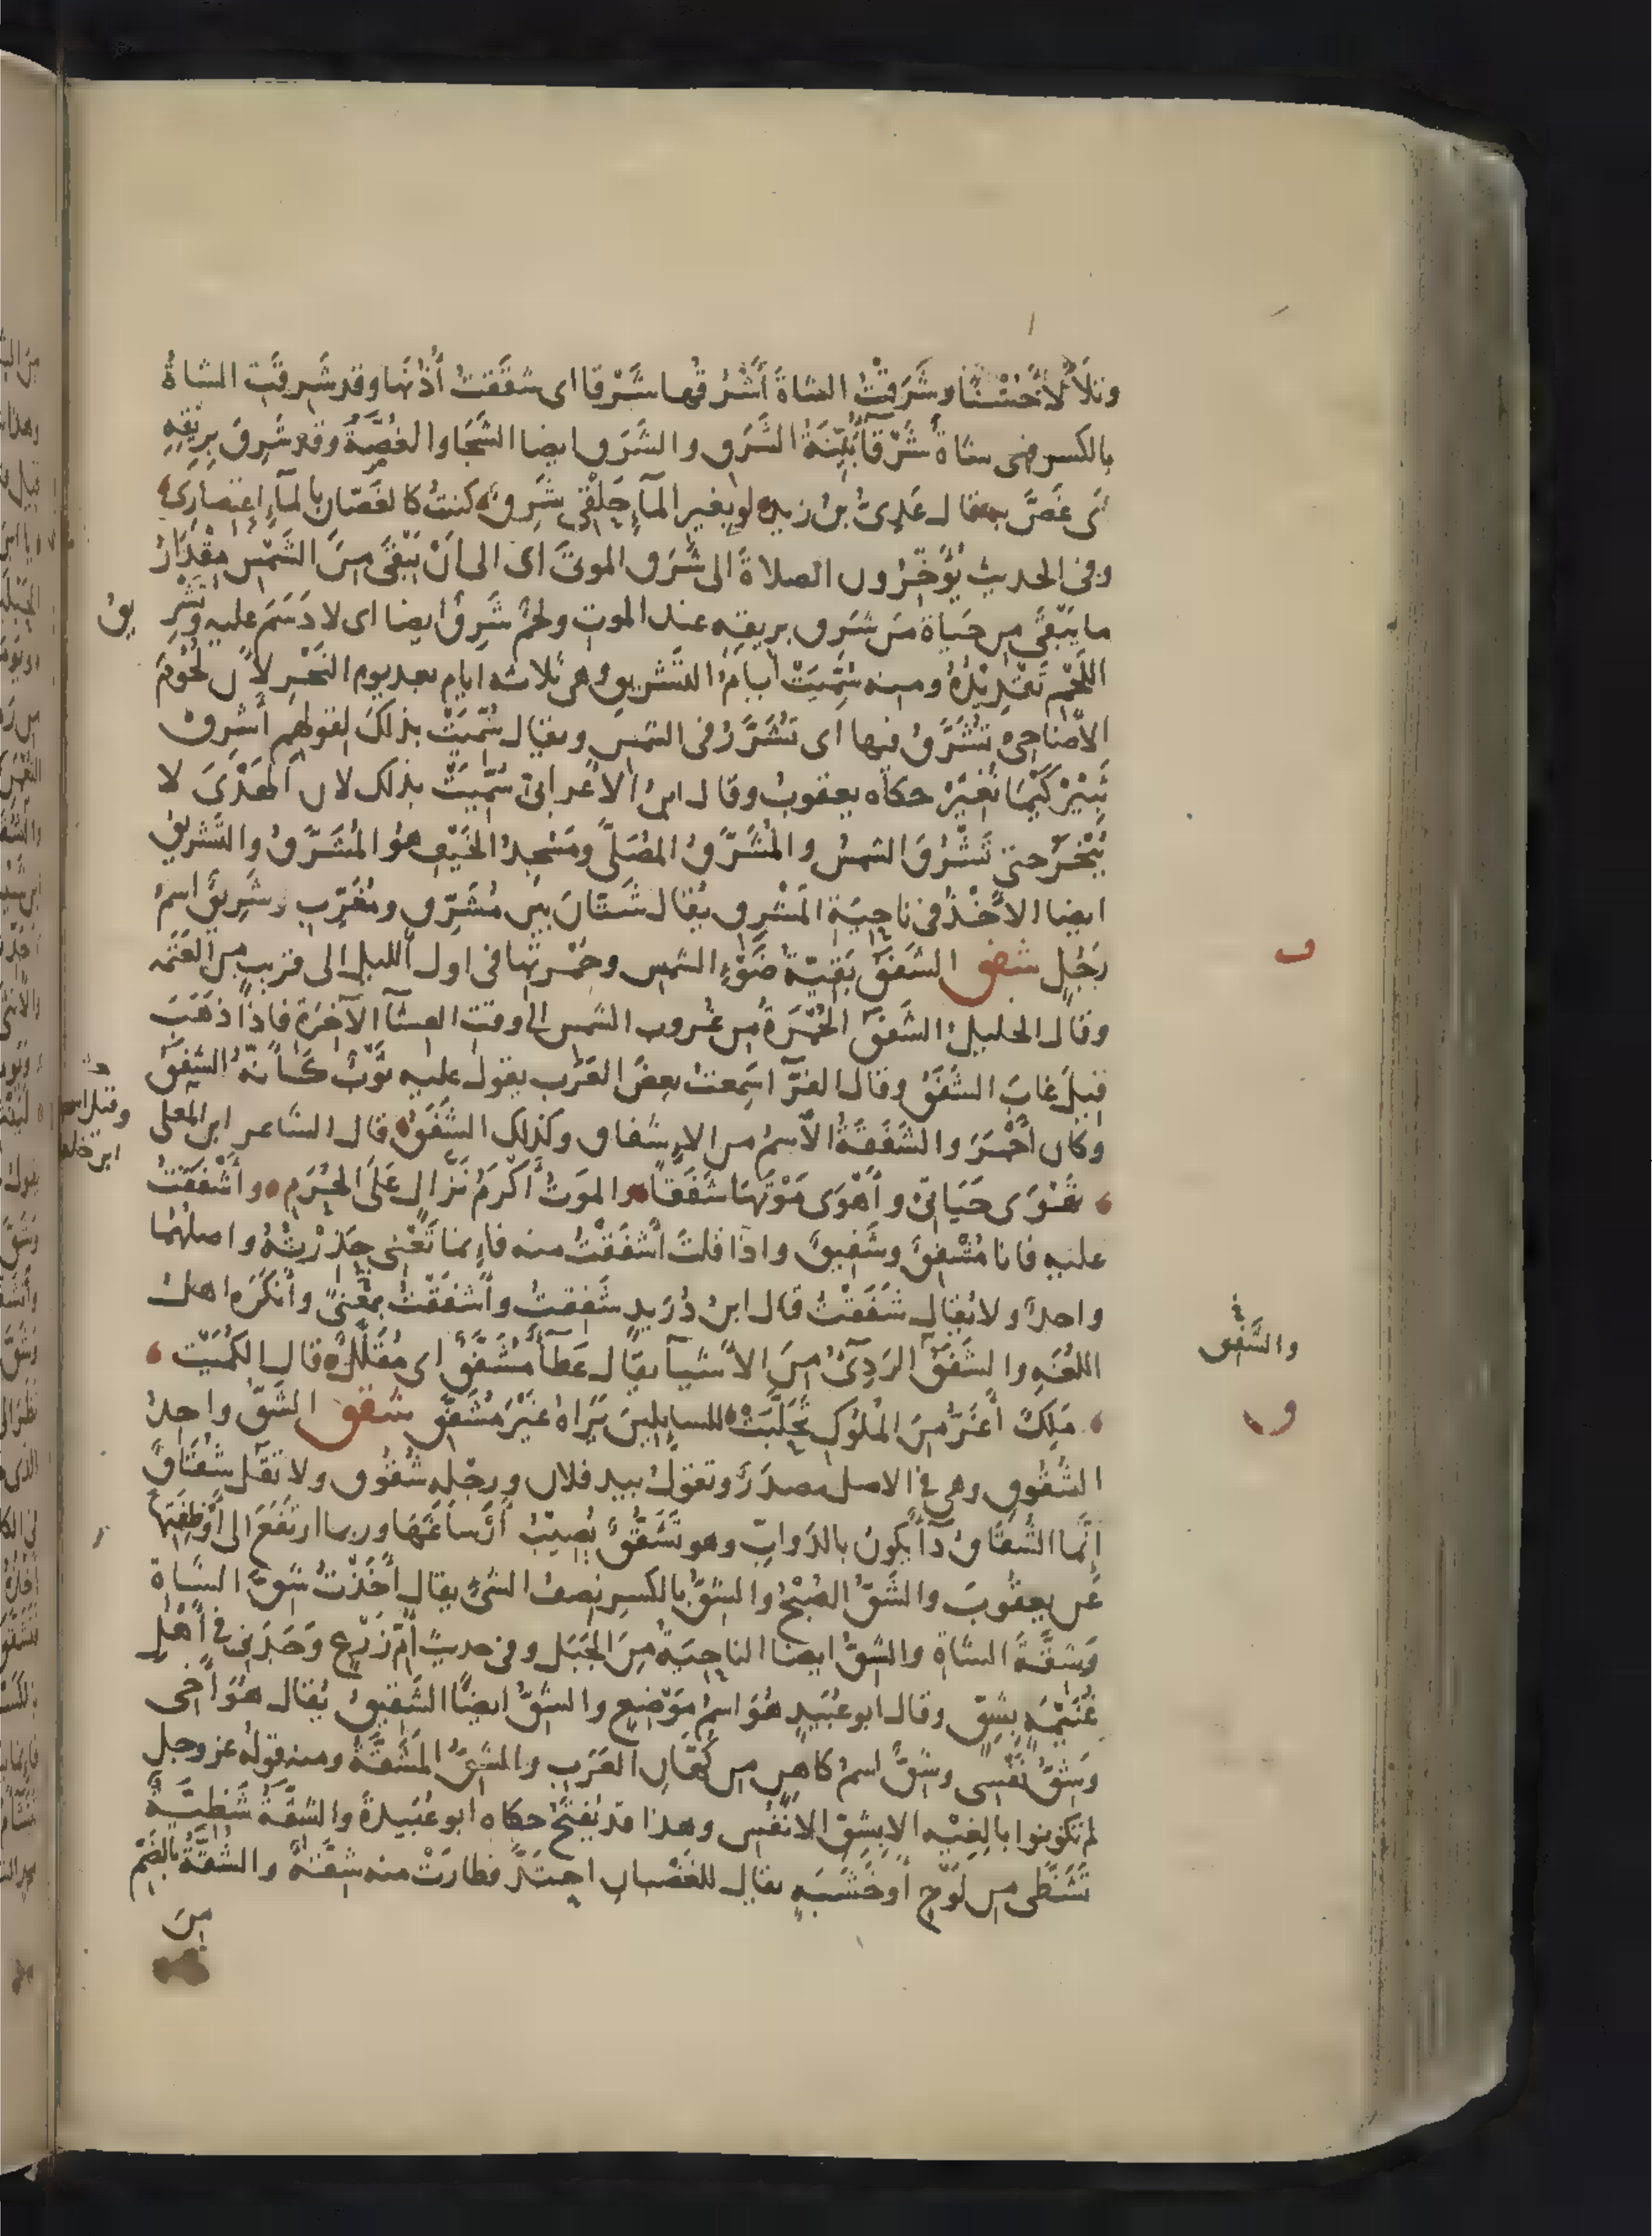 وتلألأ حُسْنًا وشَرَقْتُ الشاةَ أَشْرُقُها شَرْقا اى شققتُ أذنَها وقد شَرِقَت الشاةُ
بالكسر فهى شاةٌ شَرْقآءُ بَيِّنَةُ الشَرَق والشَرَق ايضا الشَجَا والغُصَّةُ وقد شَرِقَ بِرِيقِهِ
اى غَصَّ به قال عَدِىُّ بن زيد لو بغير المآءِ حَلْقِى شَرِقٌ كنتُ كالغَصّان بالمآءِ اعتصارى
وفى الحديث يُؤَخِّرُون الصلاةَ الى شَرَق الموتَى اى الى أنْ يَبْقَى مِنَ الشَمْس مِقْدَارُ
ما يَبْقَى من حَيَاة مَن شَرِق بريقه عند الموت ولحمٌ شَرِقٌ ايضا اى لا دَسَمَ عليه وتَشْرِ يقُ
اللَحْم تَقْدِيْدُهُ ومنه سُمِّيَتْ أيامُ التَشْرِيقِ وهى ثلاثه ايام بعد يوم النَحْرِ لأن لُحُوْمَ
الأضاحِى تُشَرَّقُ فيها اى تُشَرَّرُ فى الشمس ويقال سُمِّيَتْ بذلكَ لقولهم أَشْرِقْ
ثَبِيْرُ كَيْمَا نُغِيْرْ حكاه يعقوبُ وقال ابن الأعرابىّ سُمِّيَتْ بذلك لان الهَدْىَ لا
يُنْحَرُ حتى تَشْرُقَ الشمسُ والمُشَرَّقُ المُصَلَّى ومَسْجِدُ الخَيْفِ هُوَ المُشَرَّقُ والتَشْرِيقُ
ايضا الأخْذُ فى ناحِيَةِ المَشْرِق يُقال شَتَّانَ بين مُشَرِّق ومُغَرِّب وشَرِيقٌ اسمُ
رَجُلٍ شفق الشَفَقُ بَقِيّةُ ضَوْءِ الشمس وحُمْرتها فى اول الليل الى قريب من العَتَمه
وقال الخليلُ الشَفَقُ الحُمْرَةُ من غُروب الشمس الى وقت العِشآ الآخِرَة فاذا ذَهَبَ
قيلَ غابَ الشَفَقُ وقال الفرّآ سَمِعتُ بعضَ العَرَب يقول عليه ثَوْبٌ كأنّهُ الشَفَقُ
وكان أحْمَرَ والشَفَقَةُ الأسمُ من الإشفاق وكذلك الشَفَقُ قال الشاعر ابن المعلى
وقيل اسحق
ابن خلف
تَهْوَى حَيَاتِى وأَهْوَى مَوْتَهَا شَفَقًا والموتُ أكْرَمُ نَزّالٍ عَلَى الحُرَمِ وأَشْفَقْتُ
عليه فانا مُشْفِقٌ وشَفِيقٌ واذا قلتَ أشْفَقْتُ منه فإنما تَعْنِى حَذِرْتُهُ واصلهُمَا
واحدٌ ولا يُقال شَفَقْتُ قال ابن دُرَيدٍ شَفِقتُ وأشفَقْتُ بمَعْنىً وأنْكَرَهُ اهلُ
اللُغَهِ والشَفَقُ الرَدِىءُ مِنَ الأشيآ يقال عَطآءٌ مُشَفَّقٌ اى مُقَلَّلٌ قال الكُمَيْت
والشَّفَق
مَلِكٌ أغَرُّ مِنَ المُلُوك تَحَلَّبَتْ للسايلين يَدَاهُ غَيْرَ مُشَفِّق شقق الشَقّ واحِدُ
الشُقُوقِ وهى فى الاصل مصدَرٌ وتقولُ بيد فلان ورجْلِه شُقُوق ولا تَقُل شُقَاقٌ
إنَّما الشُقَاقُ دآءٌ يكونُ بالدَوابِّ وهو تَشَقُّقٌ يُصِيبُ أرْسَاغَهَا وربما ارتَفَعَ الى أوْظِفَتِهَا
عَن يعقُوبَ والشَقُّ الصُبْحُ والشِقُّ بالكسرِ نِصفُ الشىءِ يقال أخَذْتُ شِقَّ الشاةِ
وَشِقَّةَ الشاةِ والشِقُّ ايضا الناحِيَةُ مِنَ الجَبَل وفى حديث أمّ زَرْع وَجَدَنى فى أَهْلِ
غُنَيْمَةٍ بِشِقّ وقال ابو عُبَيدٍ هُوَ اسمُ مَوْضِعٍ والشِقُّ ايضًا الشَقِيقُ يُقال هُوَ أخى
وَشِقُّ نَفْسِى وشِقٌّ اسمُ كاهِنٍ من كُهّان العَرَب والشِقُّ المَشَقَّةُ ومنه قولُه عز وجل
لم تكونوا بالِغِيْه الا بِشِقّ الأنْفُسِ وهذا قد يُفتَحُ حكاه ابو عُبَيدةَ والشِقَّةُ شَظِيَّةٌ
تَشَظَّى من لَوْحٍ أو خَشَبَةٍ يقال للغَضْبان احتَدَّ فطارَتْ منه شِقَّةٌ والشُقَّةُ بالضَمّ
مِنَ